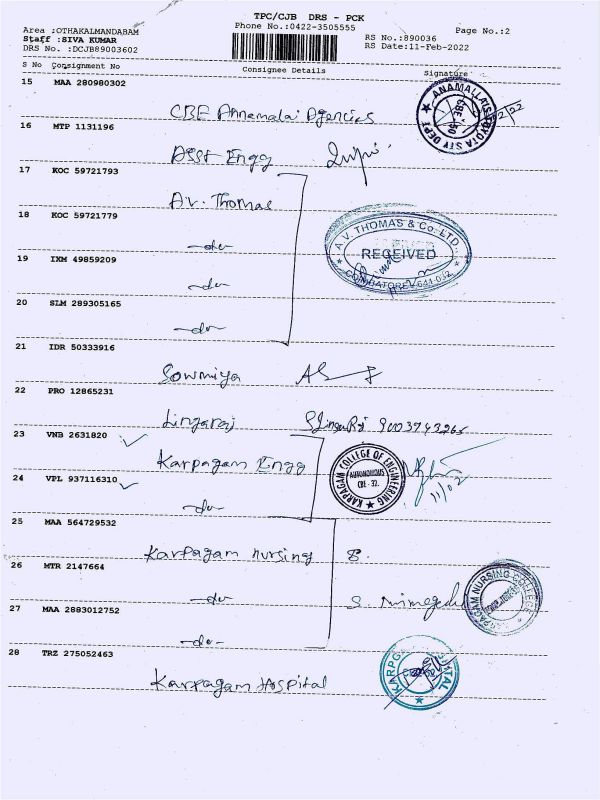 TPC/CJB DRS - PCK
Phone No.:0422-3505555
Area :OTHAKALMANDABAM
Staff :SIVA KUMAR
DRS No. :DCJB89003602
RS No.:890036
RS Date:11-Feb-2022
Page No.:2
S No Consignment No Consignee Details Signature
15 MAA 280980302
CBE Annamalai Agencies
ANAMALLAIS TOYOTA STY DEPT
16 MTP 1131196
Asst Engg
17 KOC 59721793
A.V. Thomas
18 KOC 59721779
-do-
A.V. THOMAS & Co. LTD.
RECEIVED
COIMBATORE-641 032
19 IXM 49859209
-do-
20 SLM 289305165
-do-
21 IDR 50333916
Sowmiya
22 PRO 12865231
Lingaraj 9003743265
23 VNB 2631820
Karpagam Engg
KARPAGAM COLLEGE OF ENGINEERING
AUTONOMOUS
CBE - 32.
11/02
24 VPL 937116310
-do-
25 MAA 564729532
Karpagam nursing
26 MTR 2147664
-do-
KARPAGAM NURSING COLLEGE
27 MAA 2883012752
-do-
28 TRZ 275052463
Karpagam Hospital